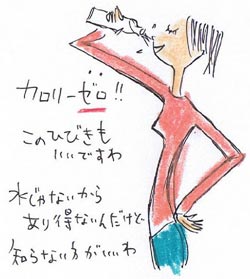 カロリーゼロ!!
このひびきも
いいですわ
水じゃないから
あり得ないんだけど
知らない方がいいわ